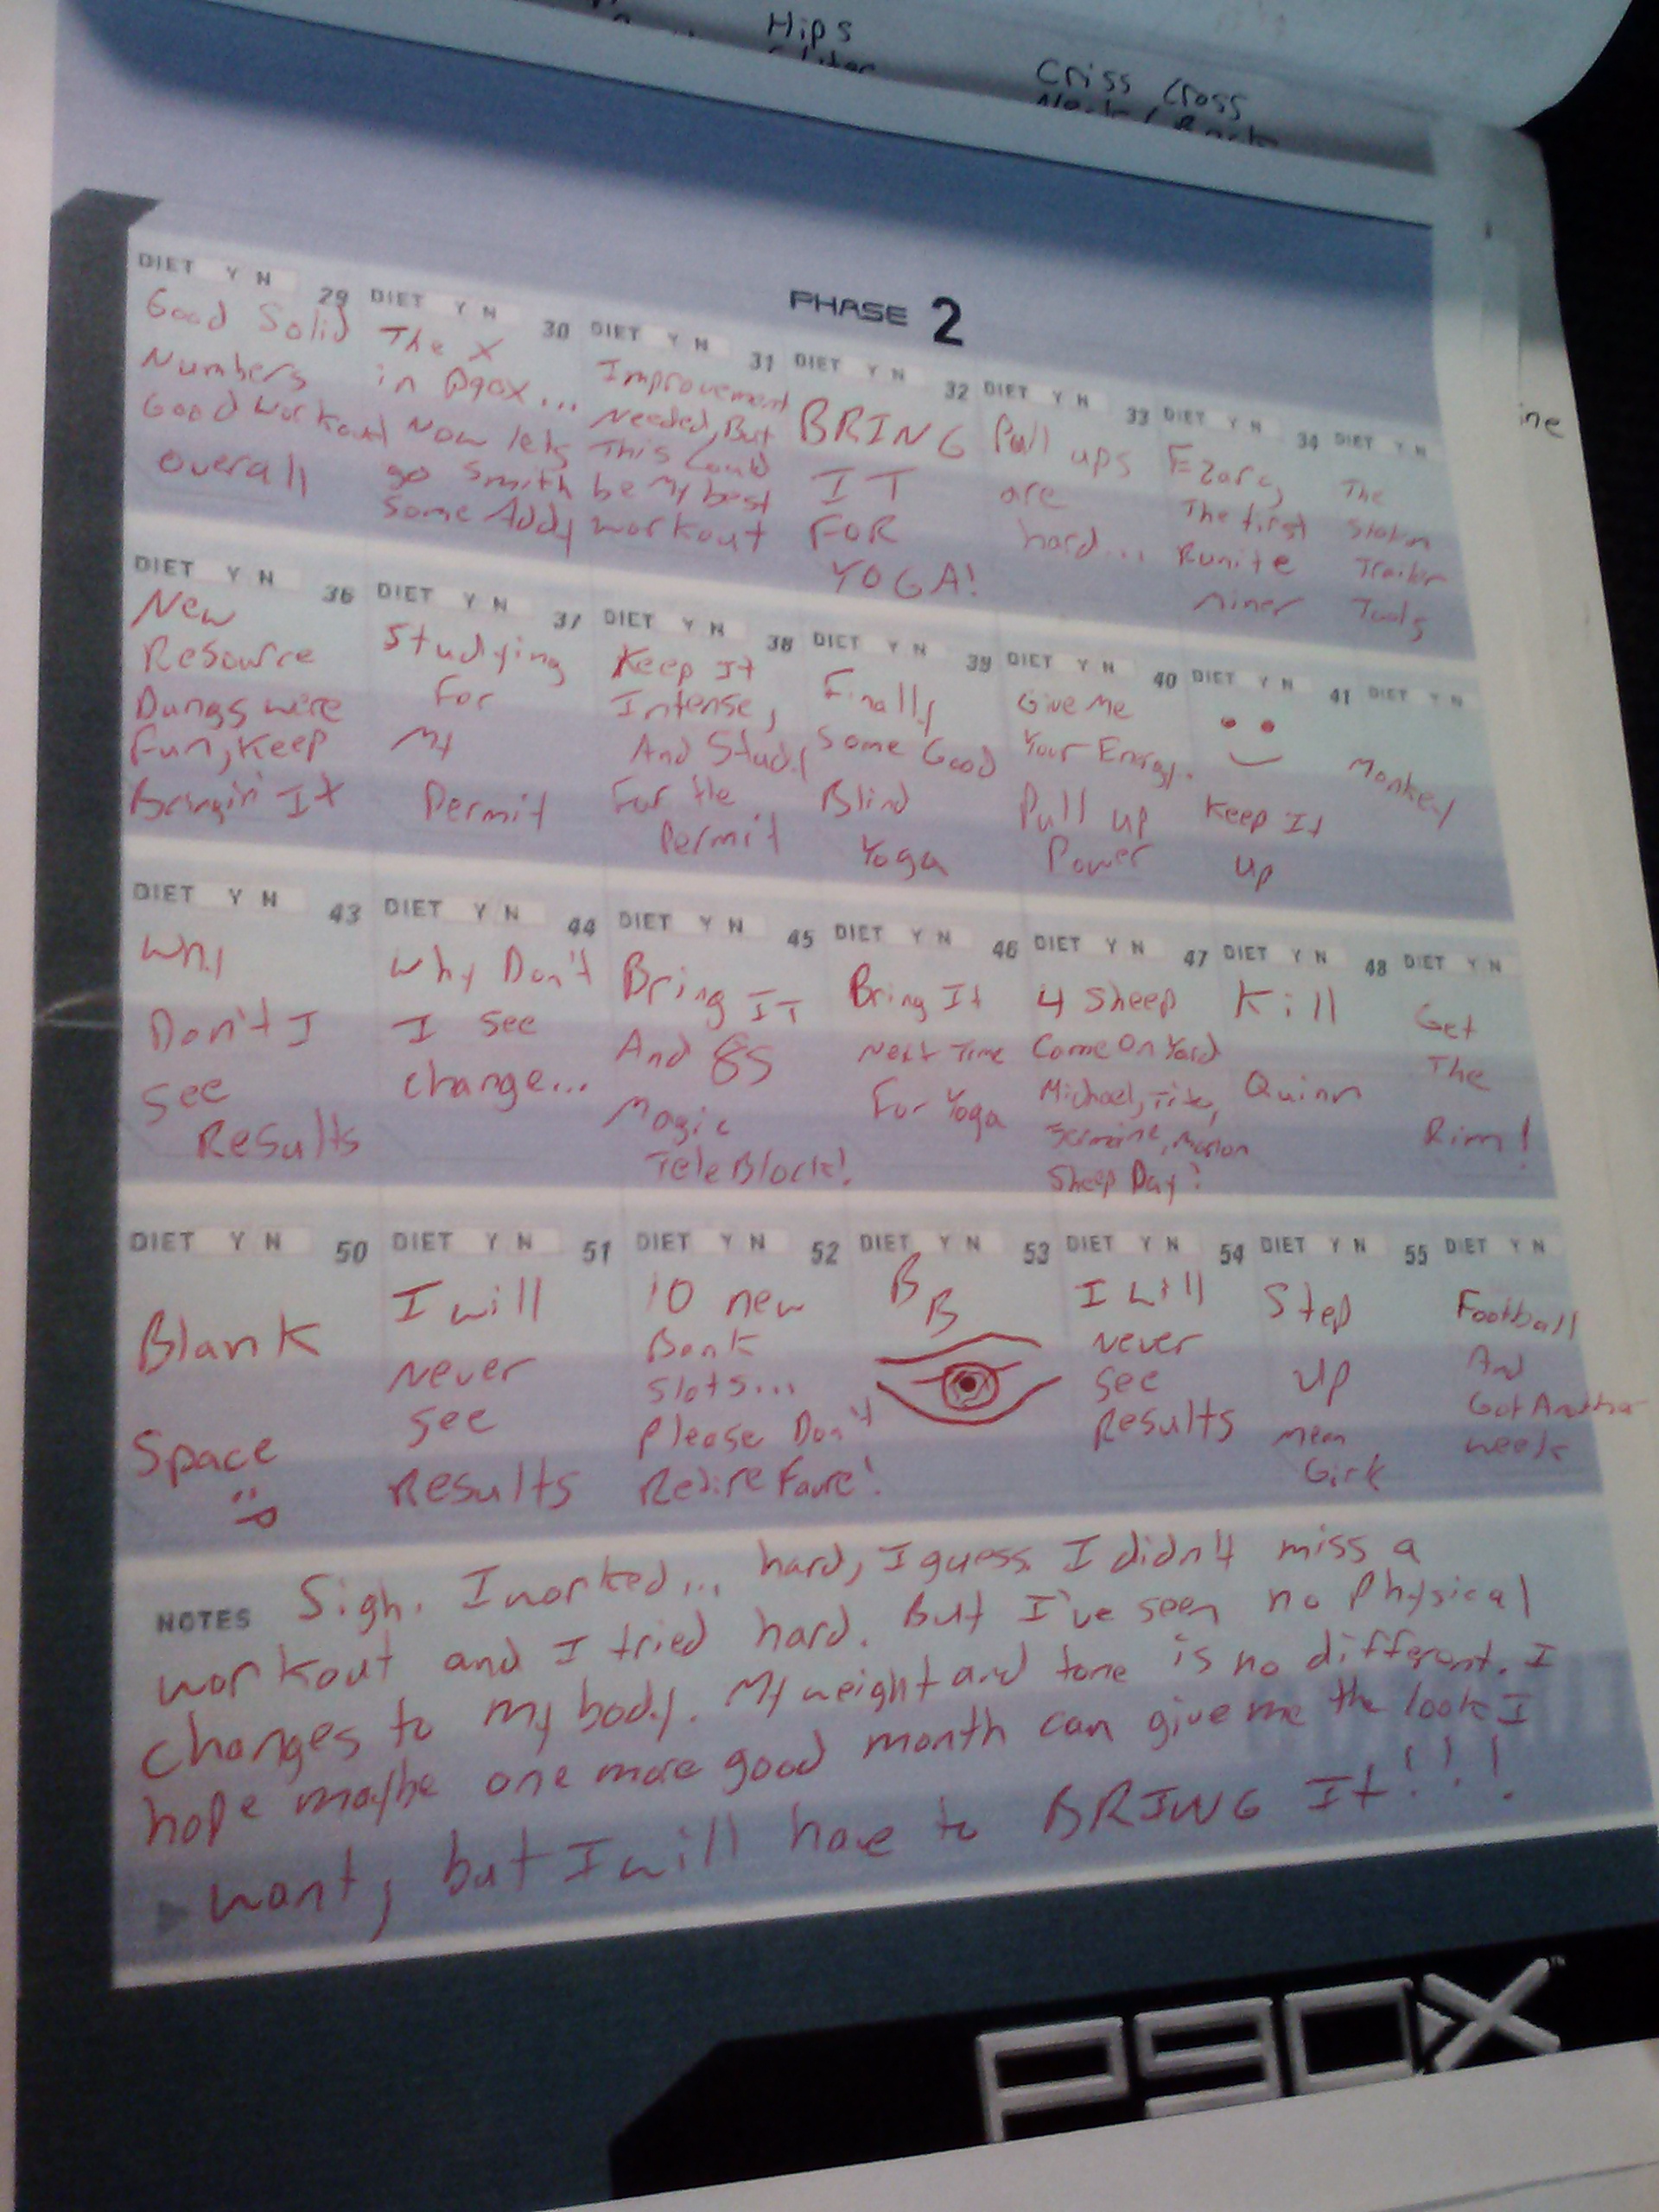 Hips
Criss Cross
PHASE 2
DIET Y N 29
Good Solid
Numbers
Good Workout
overall
DIET Y N 30
The X
in P90X...
Now lets
go smith
Some Addy
DIET Y N 31
Improvement
Needed, But
This Could
be My best
workout
DIET Y N 32
BRING
IT
FOR
YOGA!
DIET Y N 33
Pull ups
are
hard...
DIET Y N 34
The first
Runite
Miner
DIET Y N
The
Trailer
DIET Y N 36
New
Resource
Dungs were
Fun, Keep
Bringin' It
DIET Y N 37
Studying
For
My
Permit
DIET Y N 38
Keep It
Intense,
And Study
For the
Permit
DIET Y N 39
Finally
Some Good
Blind
Yoga
DIET Y N 40
Give Me
Your Energy.
Pull up
Power
DIET Y N 41
Keep It
Up
DIET Y N
Monkey
DIET Y N 43
Why
Don't I
See
Results
DIET Y N 44
Why Don't
I see
change...
DIET Y N 45
Bring IT
And 85
Magic
TeleBlock!
DIET Y N 46
Bring It
Next Time
For Yoga
DIET Y N 47
4 Sheep
Come On Yard
Michael, Tito,
Jermaine, Marlon
Sheep Day!
DIET Y N 48
Kill
Quinn
DIET Y N
Get
The
Rim!
DIET Y N 50
Blank
Space
:P
DIET Y N 51
I will
Never
See
Results
DIET Y N 52
10 new
Bank
Slots...
Please Don't
Retire Favre!
DIET Y N 53
BB
DIET Y N 54
I will
Never
See
Results
DIET Y N 55
Step
Up
DIET Y N
Football
And
Got Another
week
NOTES Sigh. I worked... hard, I guess. I didn't miss a
workout and I tried hard. But I've seen no physical
changes to my body. My weight and tone is no different. I
hope maybe one more good month can give me the look I
want, but I will have to BRING It!!!
P90X™
ine